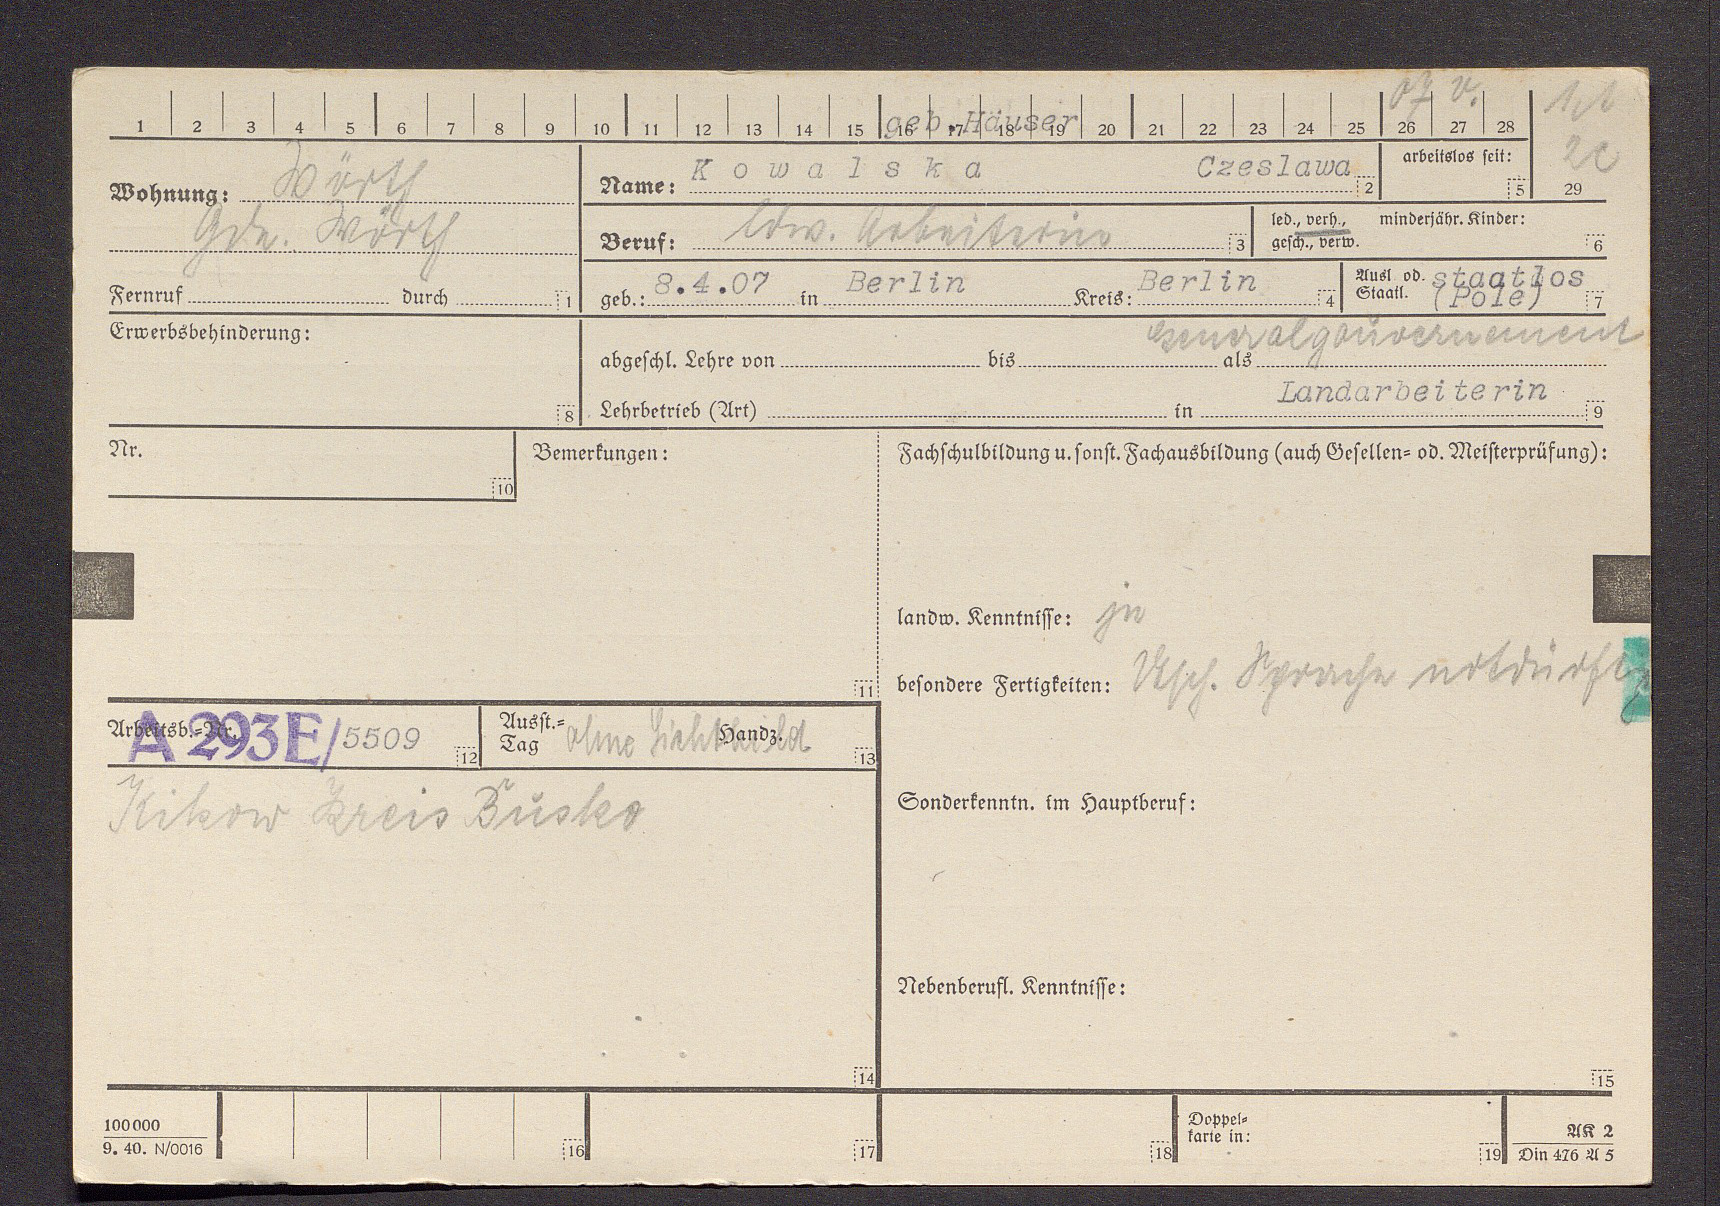 07 v.
1 2 3 4 5 6 7 8 9 10 11 12 13 14 15 16 17 18 19 20 21 22 23 24 25 26 27 28
geb. Häuser
Wohnung: Wörth
Gde. Wörth
Fernruf durch 1
Name: Kowalska Czeslawa 2
arbeitslos seit: 5
29
2c
Beruf: ldw. Arbeiterin 3
led., verh., minderjähr. Kinder:
gesch., verw. 6
geb.: 8.4.07 in Berlin Kreis: Berlin 4
Ausl. od. staatlos
Staatl. (Pole) 7
Erwerbsbehinderung: 8
Generalgouvernement
abgeschl. Lehre von bis als
Landarbeiterin
Lehrbetrieb (Art) in 9
Nr. 10
Bemerkungen: 11
Fachschulbildung u. sonst. Fachausbildung (auch Gesellen= od. Meisterprüfung):
landw. Kenntnisse: ja
besondere Fertigkeiten: dtsch. Sprache notdürftig
Arbeitsb.=Nr. A 293E/5509 12
Ausst.=
Tag ohne Lichtbild Handz. 13
Kikow Kreis Busko
14
Sonderkenntn. im Hauptberuf:
Nebenberufl. Kenntnisse:
15
100000
9. 40. N/0016
16 17 18
Doppel=
karte in: 19
AK 2
Din 476 A 5